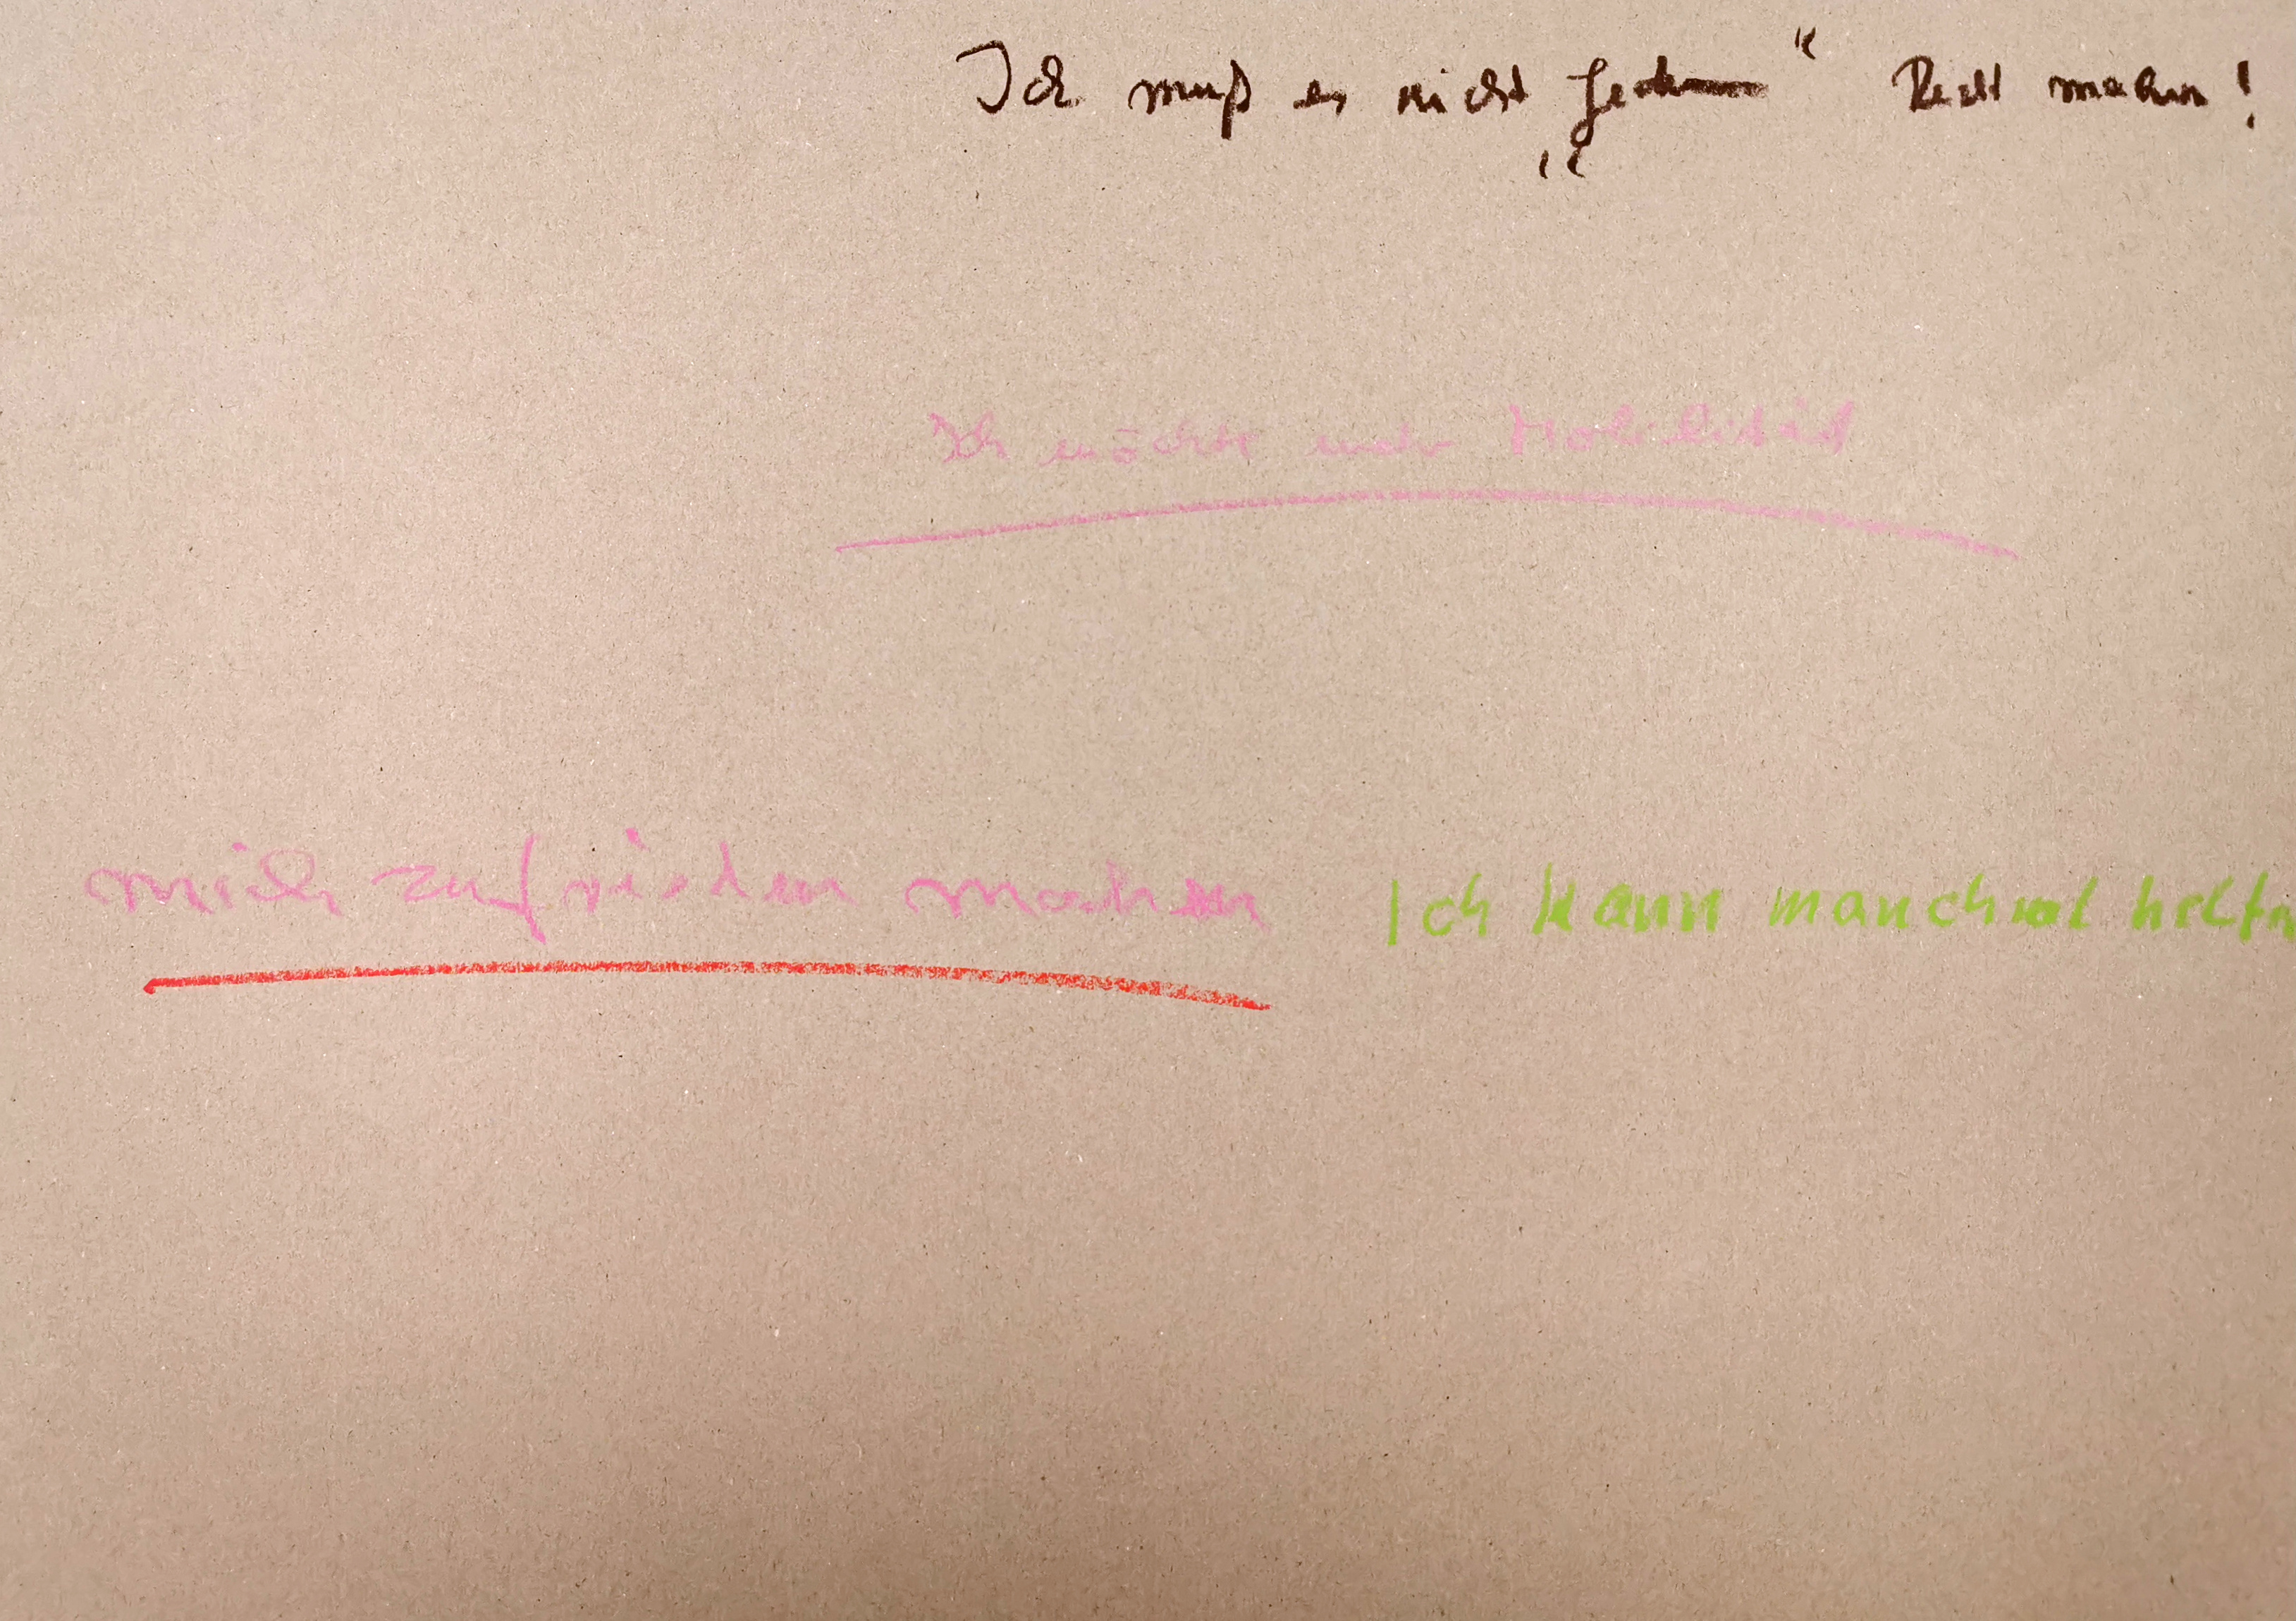 Ich muß es nicht „Jedem“ Recht machen!
Ich möchte mehr Mobilität
mich zufrieden machen
Ich kann manchmal helfen